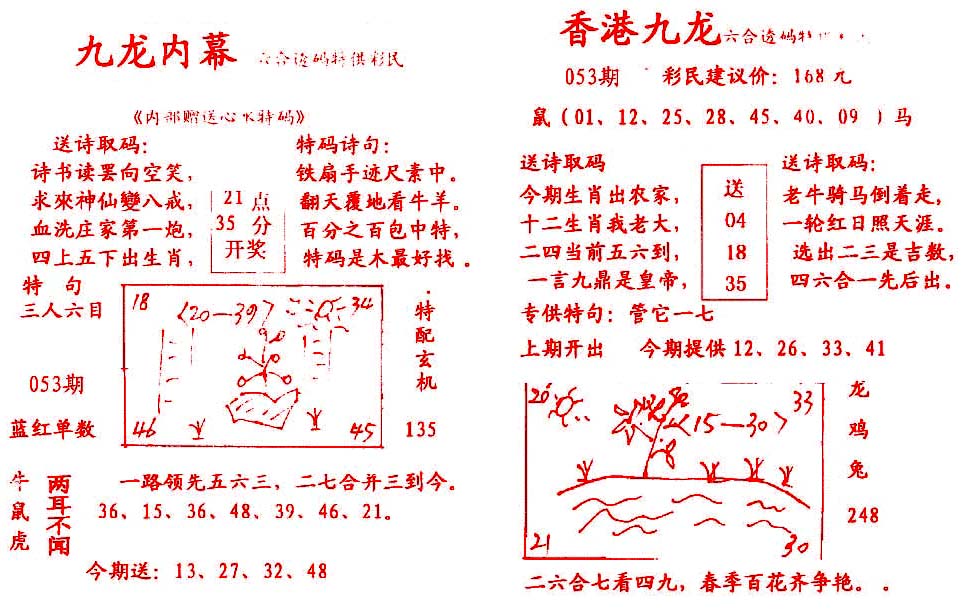 九龙内幕 六合透码特供彩民
《内部赠送心水特码》
送诗取码：
诗书读罢向空笑，
求來神仙變八戒，
血洗庄家第一炮，
四上五下出生肖，
21 点
35 分
开奖
特码诗句：
铁扇手迹尺素中。
翻天覆地看牛羊。
百分之百包中特，
特码是木最好找。
特 句
三人六目
053期
蓝红单数
18
〈20—39〉
34
46
45
特配玄机
135
牛鼠虎
两耳不闻
一路领先五六三，二七合并三到今。
36、15、36、48、39、46、21。
今期送：13、27、32、48
香港九龙 六合透码特
053期 彩民建议价：168元
鼠（01、12、25、28、45、40、09 ）马
送诗取码
今期生肖出农家，
十二生肖我老大，
二四当前五六到，
一言九鼎是皇帝，
送
04
18
35
送诗取码：
老牛骑马倒着走，
一轮红日照天涯。
选出二三是吉数，
四六合一先后出。
专供特句：管它一七
上期开出 今期提供12、26、33、41
20
〈15—30〉
33
21
30
龙
鸡
兔
248
二六合七看四九，春季百花齐争艳。